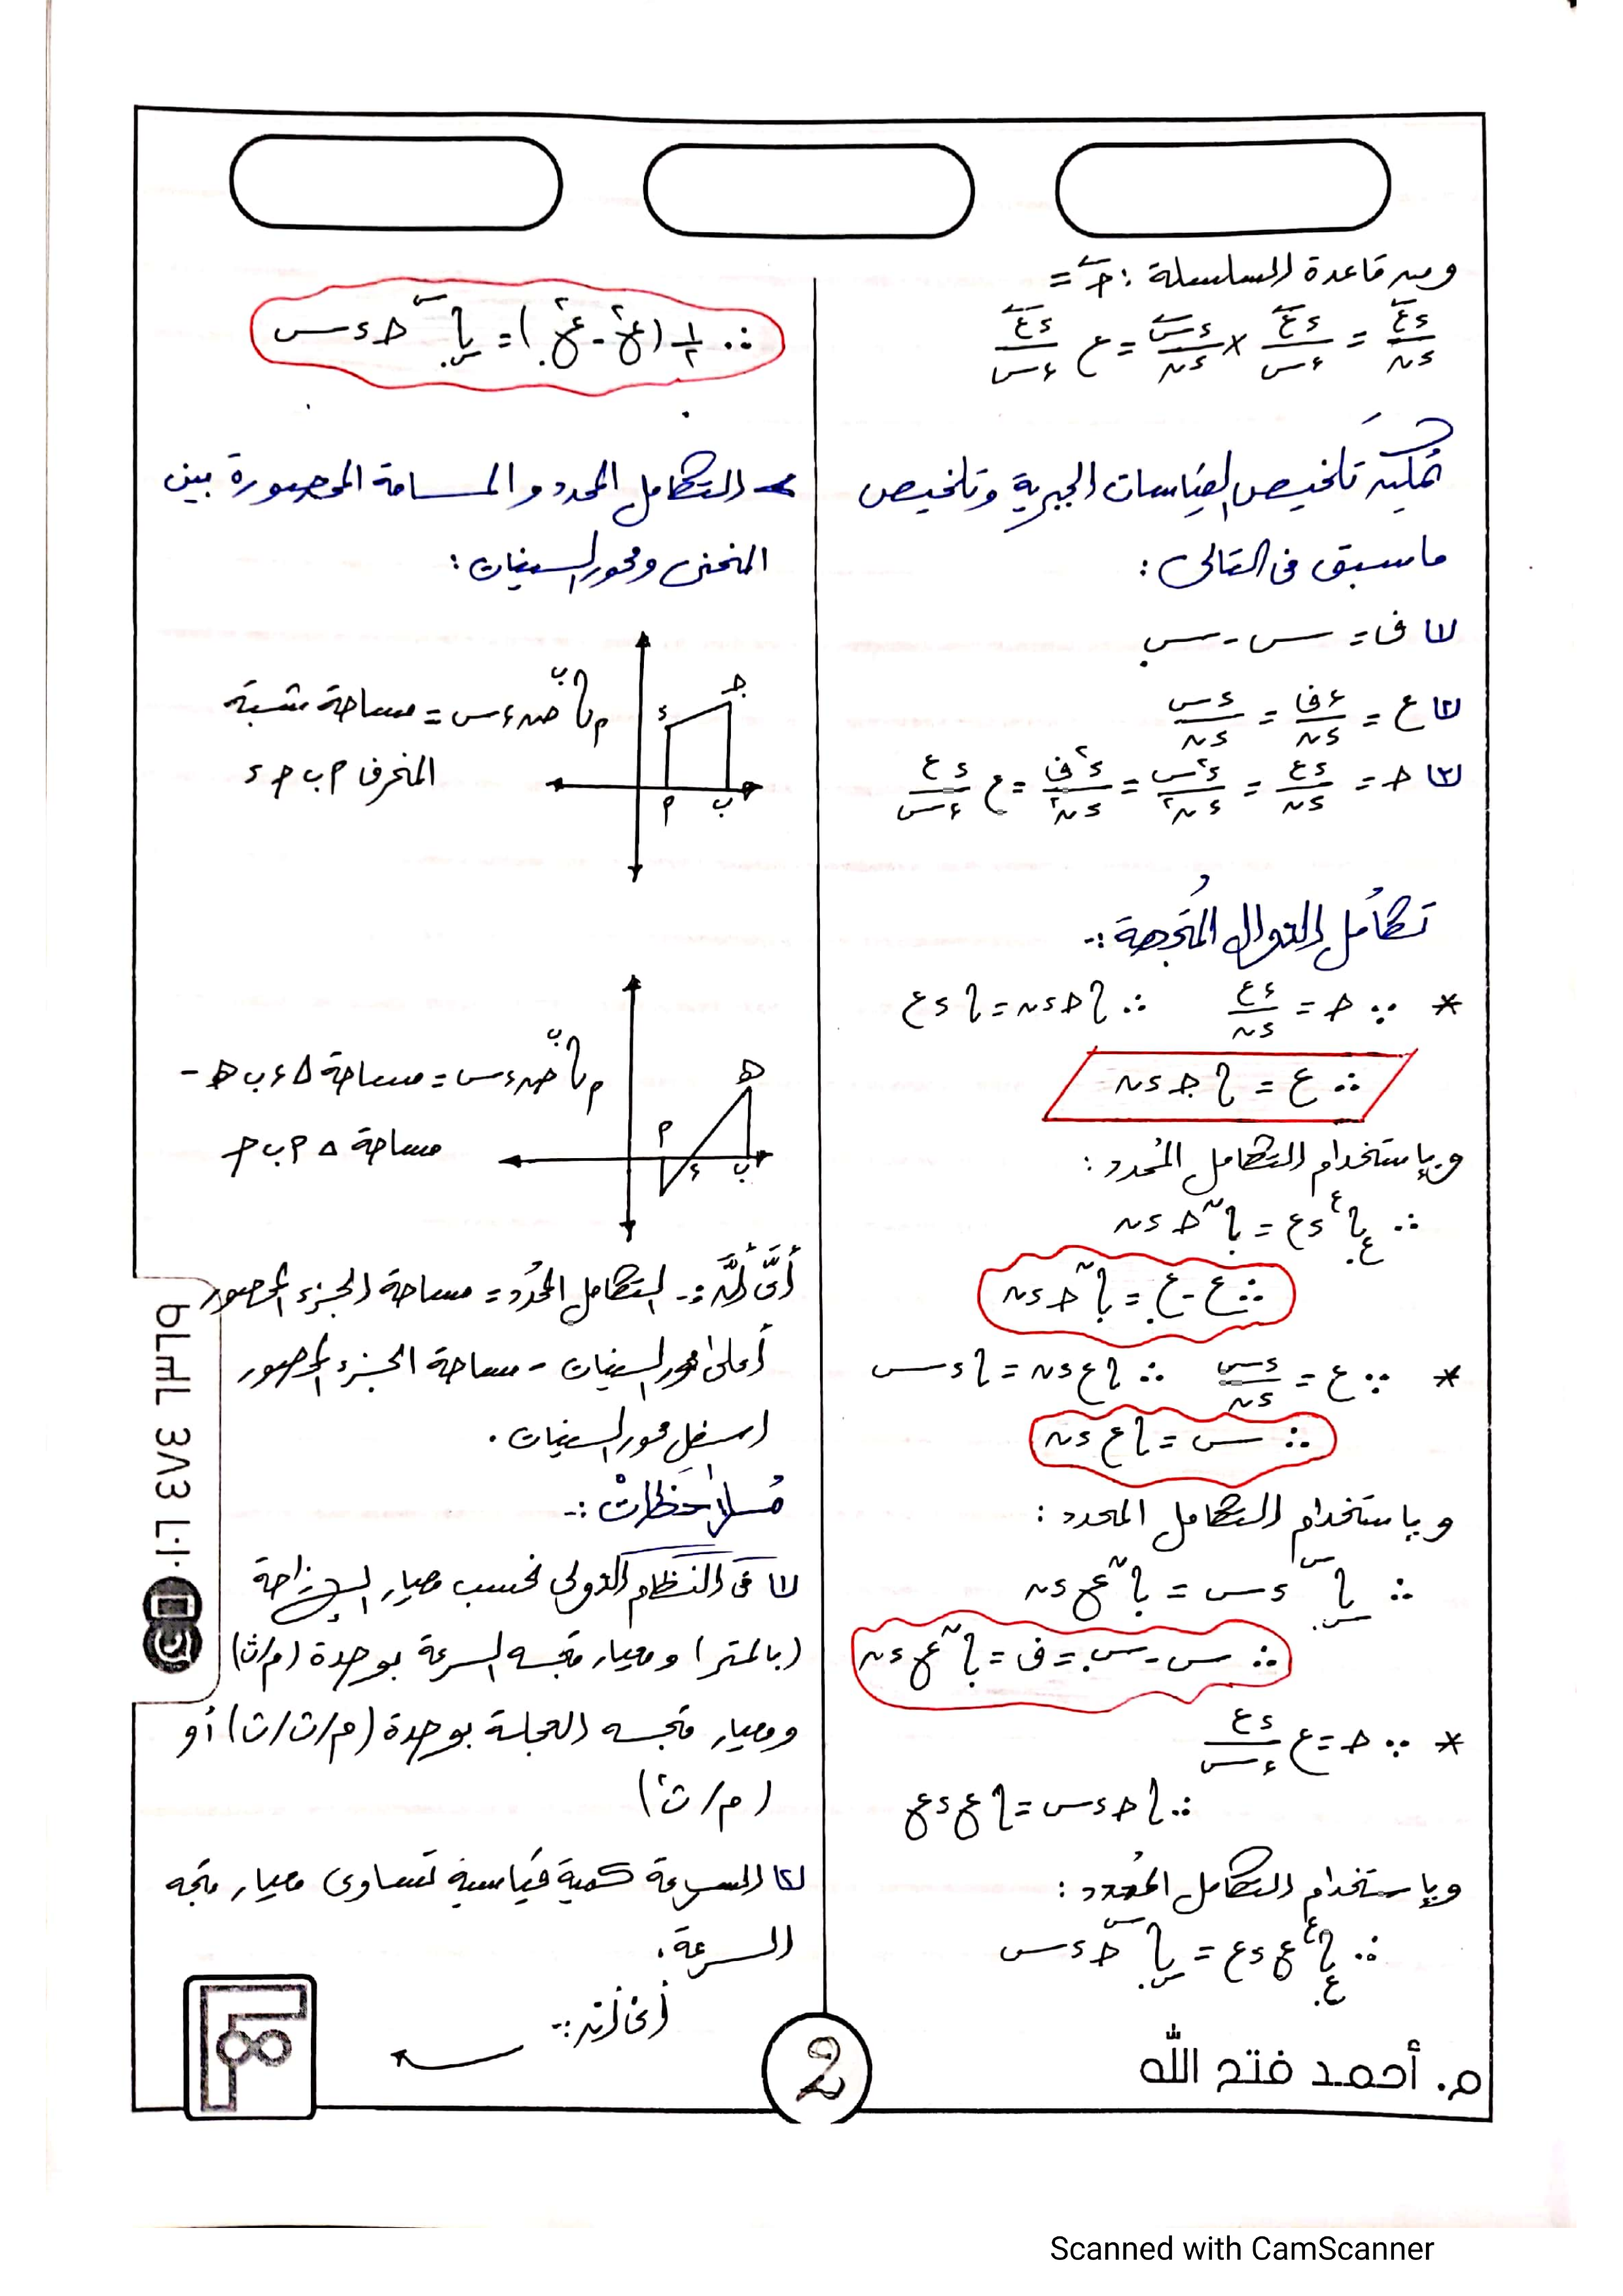 ومن قاعدة السلسلة : جـ =
ءع/ءن = ءع/ءس × ءس/ءن = ع ءع/ءس
يُمكن تلخيص القياسات الجبرية وتلخيص
ما سبق فى التالى :
١) ف = س - س.
٢) ع = ءف/ءن = ءس/ءن
٣) جـ = ءع/ءن = ء²س/ءن² = ء²ف/ءن² = ع ءع/ءس
تكامُل الدوال المُتجهة :-
* ∵ جـ = ءع/ءن ∴ ∫ جـ ءن = ∫ ءع
∴ ع = ∫ جـ ءن
وبإستخدام التكامل المُحدد :
∴ ∫ع.^ع ءع = ∫.^ن جـ ءن
∴ ع - ع. = ∫.^ن جـ ءن
* ∵ ع = ءس/ءن ∴ ∫ ع ءن = ∫ ءس
∴ س = ∫ ع ءن
وباستخدام التكامل المحدد :
∴ ∫س.^س ءس = ∫.^ن ع ءن
∴ س - س. = ف = ∫.^ن ع ءن
* ∵ جـ = ع ءع/ءس
∴ ∫ جـ ءس = ∫ ع ءع
وبإستخدام التكامل المُحدد :
∴ ∫ع.^ع ع ءع = ∫س.^س جـ ءس
∴ ١/٢ (ع² - ع.²) = ∫س.^س جـ ءس
التكامل المحدد والمساحة المحصورة بين
المنحنى ومحور السينات :
ء جـ
∫م^ب ص ءس = مساحة شبة
المنحرف م ب جـ ء
م ب
∫م^ب ص ءس = مساحة Δ ء ب هـ -
مساحة Δ م ب جـ
هـ
م
ء ب
أىّ أنَّه :- التكامل المحُدد = مساحة الجزء المحصور
أعلى محور السينات - مساحة الجزء المحصور
اسفل محور السينات .
مُلاحَظاتْ :-
١) فى النظام الدولى نحسب معيار الإزاحة
(بالمتر) ومعيار متجه السرعة بوحدة (م/ث)
ومعيار متجه العجلة بوحدة (م/ث/ث) أو
(م/ث²)
٢) السرعة كمية قياسية تساوى معيار متجه
السرعة .
أى أنه :-
٠١٠١ ٤٨٤ ٦٤٦٩
2
م. أحمد فتح الله
Scanned with CamScanner